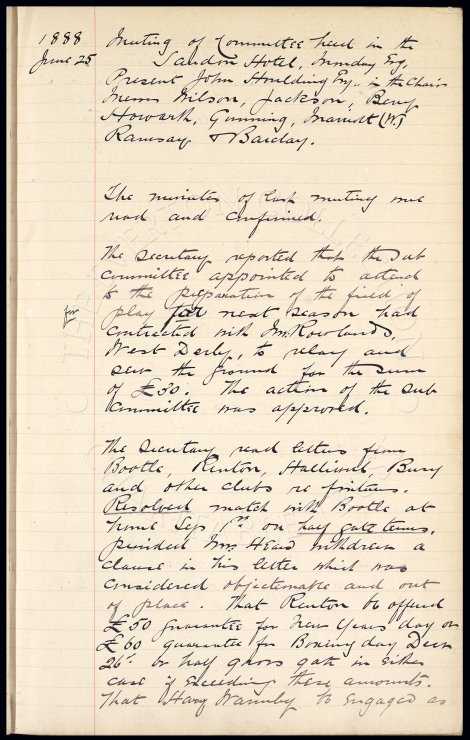 1888 Meeting of Committee held in the
June 25 Sandon Hotel, Monday Evg,
Present John Houlding Esq., in the Chair
Messrs Wilson, Jackson, Berry
Howarth, Gunning, Marriott (W.)
Ramsay & Barclay.
The minutes of last meeting were
read and confirmed.
The Secretary reported that the Sub
Committee appointed to attend
to the preparation of the field of
play for next season had
contracted with Mr Rowlands,
West Derby, to relay and
sew the ground for the sum
of £30. The action of the Sub
Committee was approved.
The Secretary read letters from
Bootle, Renton, Halliwell, Bury
and other clubs re fixtures.
Resolved match with Bootle at
home Sep 1st on half gate terms,
provided Mr Head withdrew a
clause in his letter which was
considered objectionable and out
of place. That Renton be offered
£50 guarantee for New Years day or
£60 guarantee for Boxing day Decr
26th or half gross gate in either
case if exceeding these amounts.
That Harry Warmby be engaged as